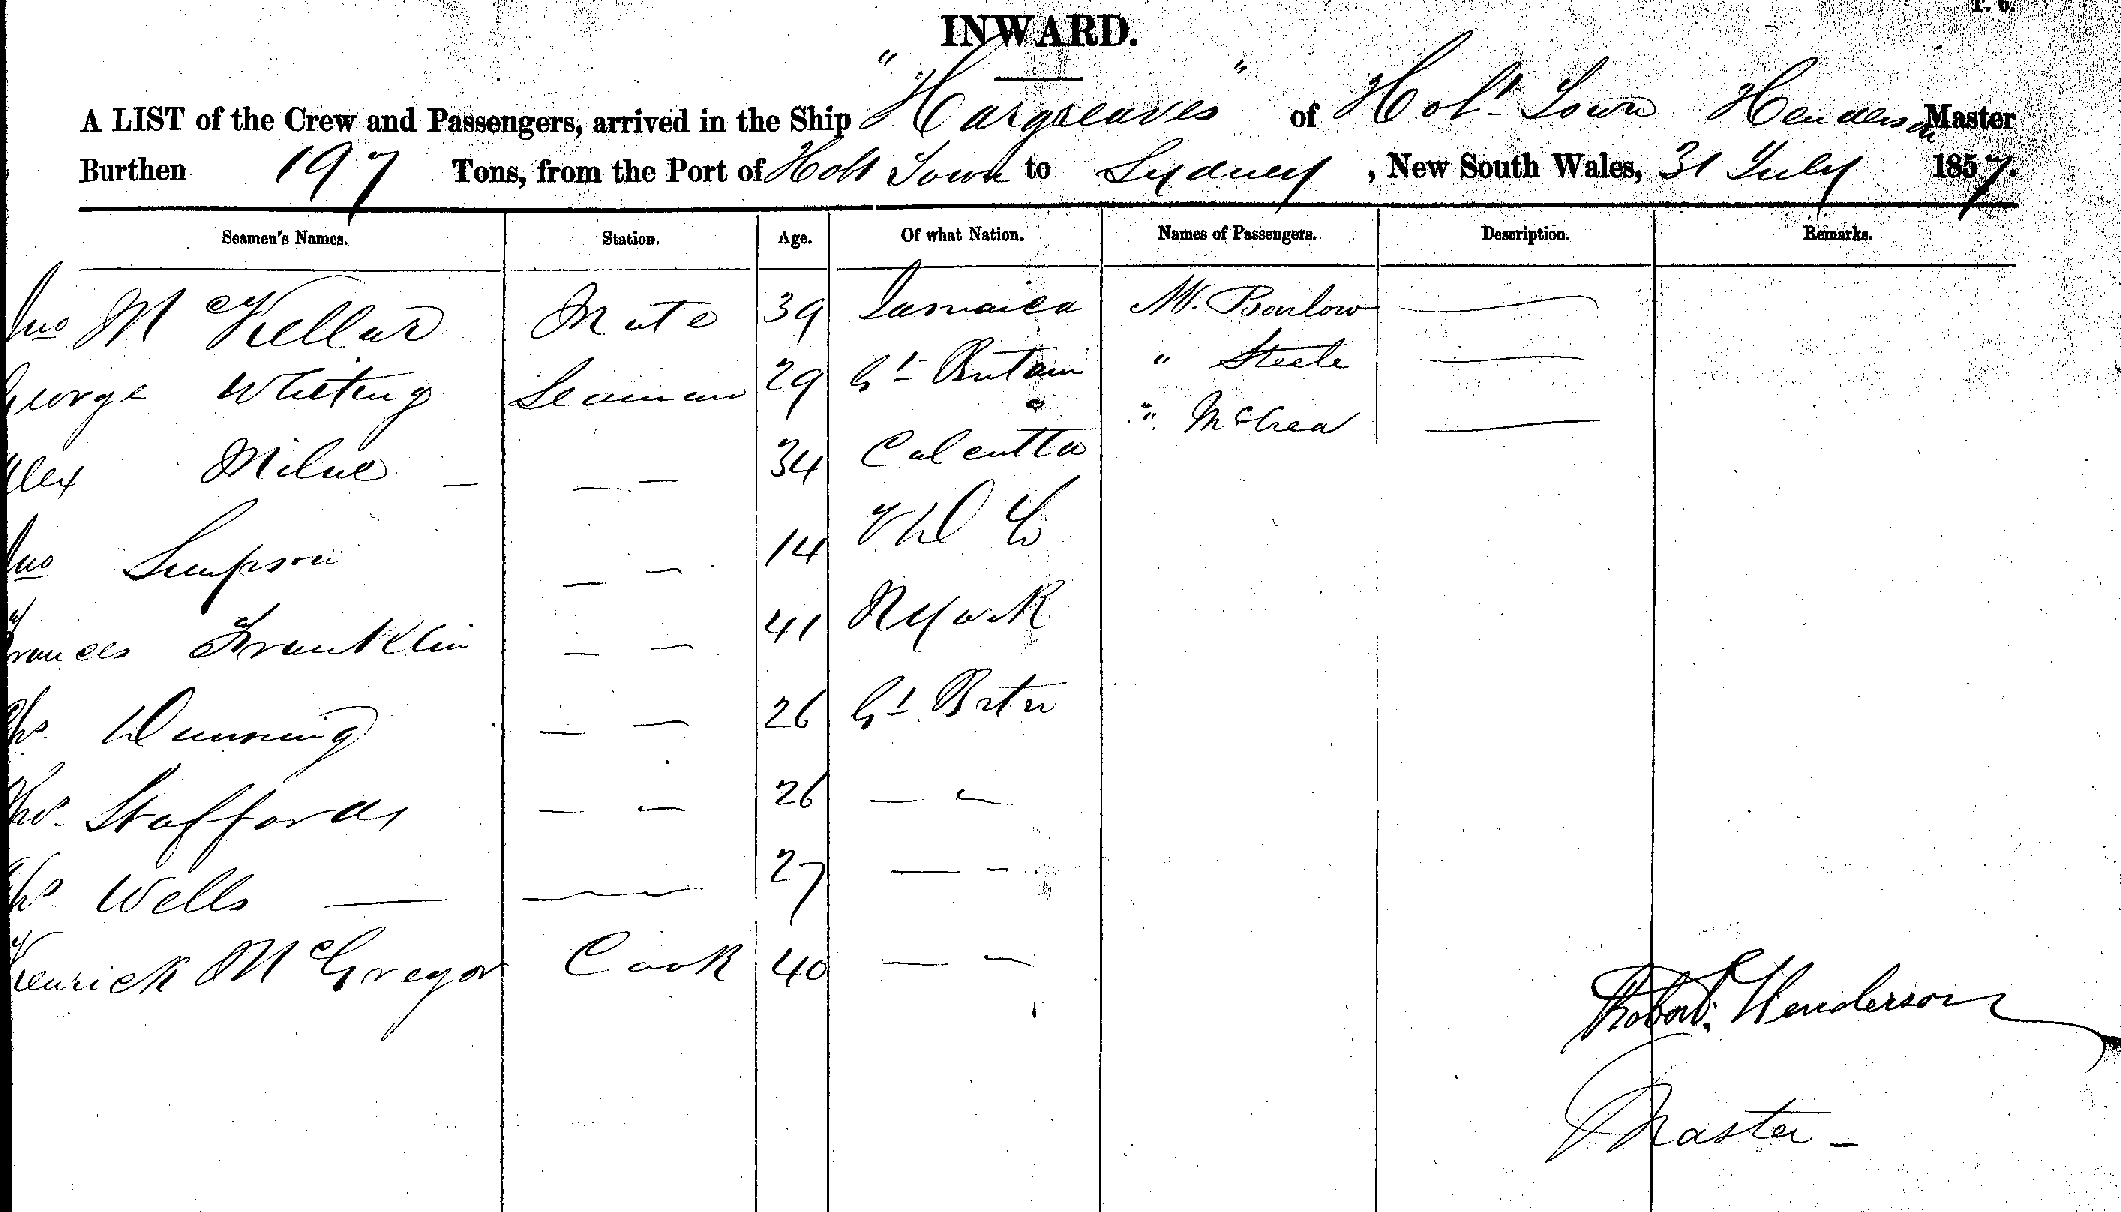 INWARD.
A LIST of the Crew and Passengers, arrived in the Ship "Hargreaves" of Hobt Town Henderson Master
Burthen 197 Tons, from the Port of Hobt Town to Sydney, New South Wales, 31 July 1857.
Seamen's Names. Station. Age. Of what Nation. Names of Passengers. Description. Remarks.
Jno McKellar Mate 39 Jamaica Mr. Barlow —
George Whiting Seaman 29 Gt Britain " Steele —
Alex Milne — — — 34 Calcutta " McCrea —
Jno Simpson — — 14 V D L
Frances Franklin — — 41 N York
Thos. Dunning — — 26 Gt Britn
Thos. Staffords — — 26 — —
Thos Wells — — 27 — —
Kenrick McGregor Cook 40 — —
Robert Henderson
Master —